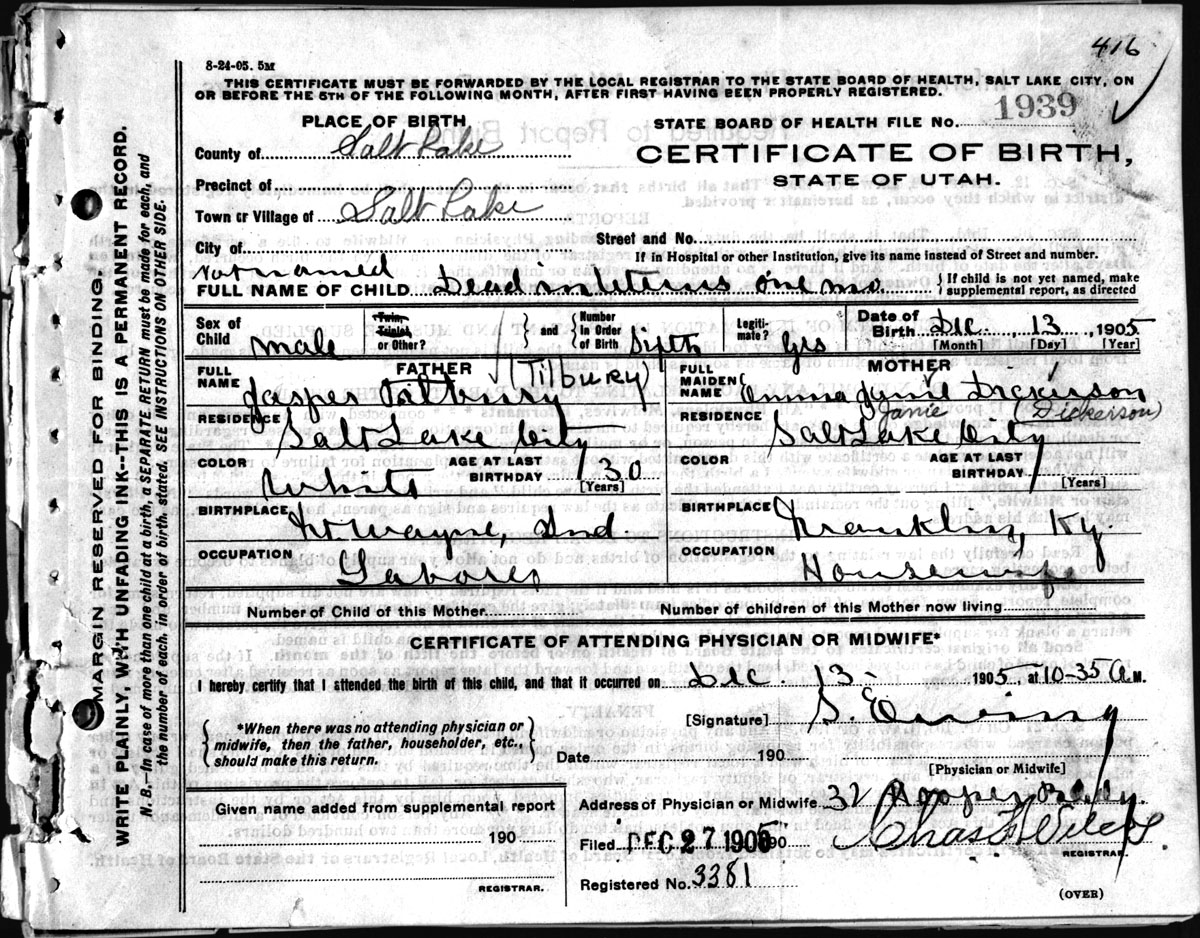 416
8-24-05. 5M
THIS CERTIFICATE MUST BE FORWARDED BY THE LOCAL REGISTRAR TO THE STATE BOARD OF HEALTH, SALT LAKE CITY, ON
OR BEFORE THE 5TH OF THE FOLLOWING MONTH, AFTER FIRST HAVING BEEN PROPERLY REGISTERED.
PLACE OF BIRTH
STATE BOARD OF HEALTH FILE NO. 1939
County of Salt Lake
CERTIFICATE OF BIRTH,
STATE OF UTAH.
Precinct of
Town or Village of Salt Lake
City of
Street and No.
If in Hospital or other Institution, give its name instead of Street and number.
Not named
FULL NAME OF CHILD Dead in uterus one mo
{If child is not yet named, make supplemental report, as directed
Sex of Child male
Twin, Triplet or Other?
{ and { Number In Order of Birth Sixth
Legitimate? Yes
Date of Birth Dec. 13, 1905
[Month] [Day] [Year]
FATHER
FULL NAME Jasper Tilbury (Tilbury)
MOTHER
FULL MAIDEN NAME Emma Dickerson
Janie (Dickerson)
RESIDENCE Salt Lake City
RESIDENCE Salt Lake City
COLOR White
AGE AT LAST BIRTHDAY 30 [Years]
COLOR
AGE AT LAST BIRTHDAY [Years]
BIRTHPLACE Ft. Wayne, Ind.
BIRTHPLACE Franklin, Ky
OCCUPATION Laborer
OCCUPATION Housewife
Number of Child of this Mother
Number of children of this Mother now living
CERTIFICATE OF ATTENDING PHYSICIAN OR MIDWIFE*
I hereby certify that I attended the birth of this child, and that it occurred on Dec. 13- 1905, at 10-35 A.M.
{*When there was no attending physician or midwife, then the father, householder, etc., should make this return.}
[Signature] S. Ewing
Date 190
[Physician or Midwife]
Given name added from supplemental report
190
REGISTRAR.
Address of Physician or Midwife 32
Filed DEC 27 1905 190 Chas
REGISTRAR.
Registered No. 3381
(OVER)
MARGIN RESERVED FOR BINDING
WRITE PLAINLY, WITH UNFADING INK--THIS IS A PERMANENT RECORD.
N. B.--In case of more than one child at a birth, a SEPARATE RETURN must be made for each, and
the number of each, in order of birth, stated. SEE INSTRUCTIONS ON OTHER SIDE.